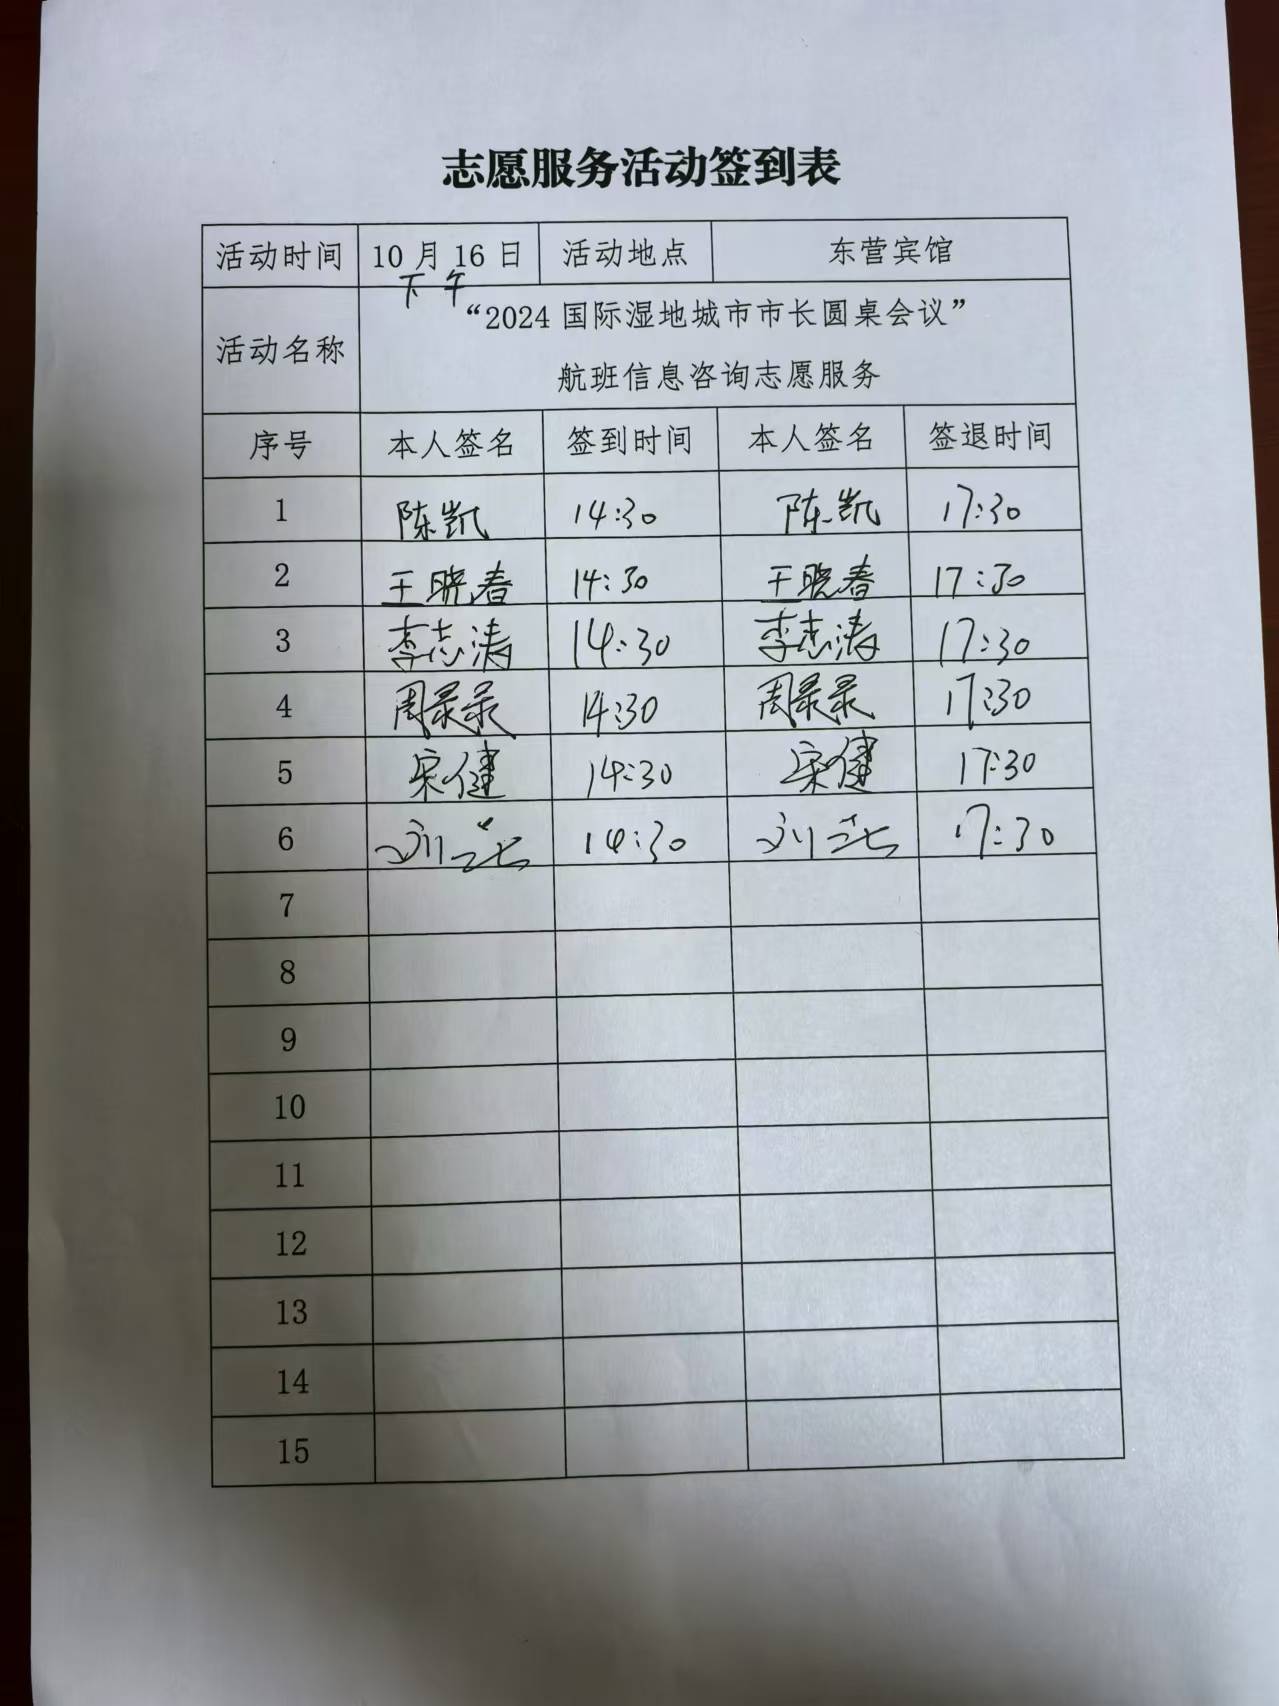 志愿服务活动签到表
活动时间 10月16日 活动地点 东营宾馆
下午
活动名称 “2024国际湿地城市市长圆桌会议”
航班信息咨询志愿服务
序号 本人签名 签到时间 本人签名 签退时间
1 陈凯 14:30 陈凯 17:30
2 王晓春 14:30 王晓春 17:30
3 李志涛 14:30 李志涛 17:30
4 周录录 14:30 周录录 17:30
5 宋健 14:30 宋健 17:30
6 刘 14:30 刘 17:30
7
8
9
10
11
12
13
14
15